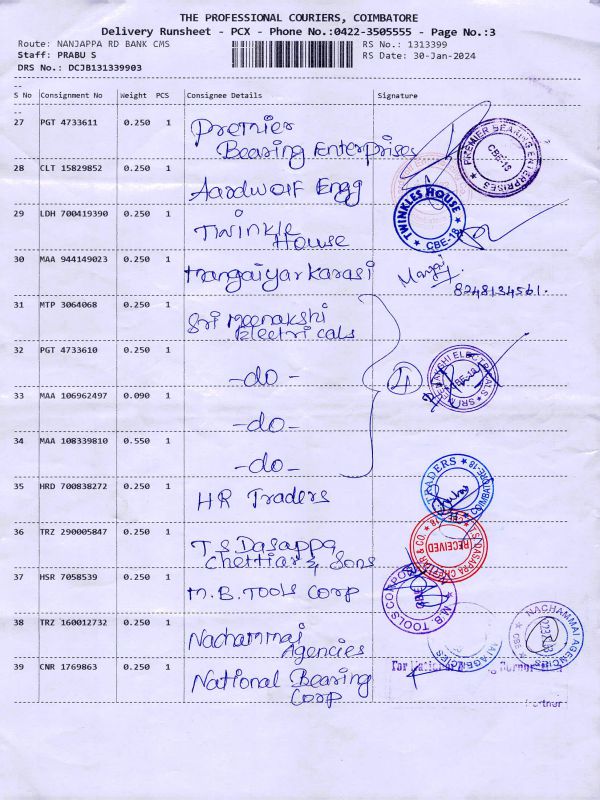 THE PROFESSIONAL COURIERS, COIMBATORE
Delivery Runsheet - PCX - Phone No.:0422-3505555 - Page No.:3
Route: NANJAPPA RD BANK CMS RS No.: 1313399
Staff: PRABU S RS Date: 30-Jan-2024
DRS No.: DCJB131339903
S No Consignment No Weight PCS Consignee Details Signature
27 PGT 4733611 0.250 1 Premier
Bearing Enterprises
PREMIER BEARING ENTERPRISES
CBE-18
28 CLT 15829852 0.250 1 Aardwolf Engg
29 LDH 700419390 0.250 1 Twinkle
House
TWINKLES HOUSE
CBE-18
30 MAA 944149023 0.250 1 Mangaiyarkarasi
8248134561.
31 MTP 3064068 0.250 1 Sri Meenakshi
Electricals
32 PGT 4733610 0.250 1 -do-
4
33 MAA 106962497 0.090 1 -do-
34 MAA 108339810 0.550 1 -do-
35 HRD 700838272 0.250 1 HR Traders
TRADERS
36 TRZ 290005847 0.250 1 T.S Dasappa
Chettiar & Sons
T.S. DASAPPA CHETTIAR & CO.
RECEIVED
37 HSR 7058539 0.250 1 M.B. Tools Corp
M.B. TOOLS CORPO
38 TRZ 160012732 0.250 1 Nachammai
Agencies
NACHAMMAI AGENCIES
39 CNR 1769863 0.250 1 National Bearing
Corp